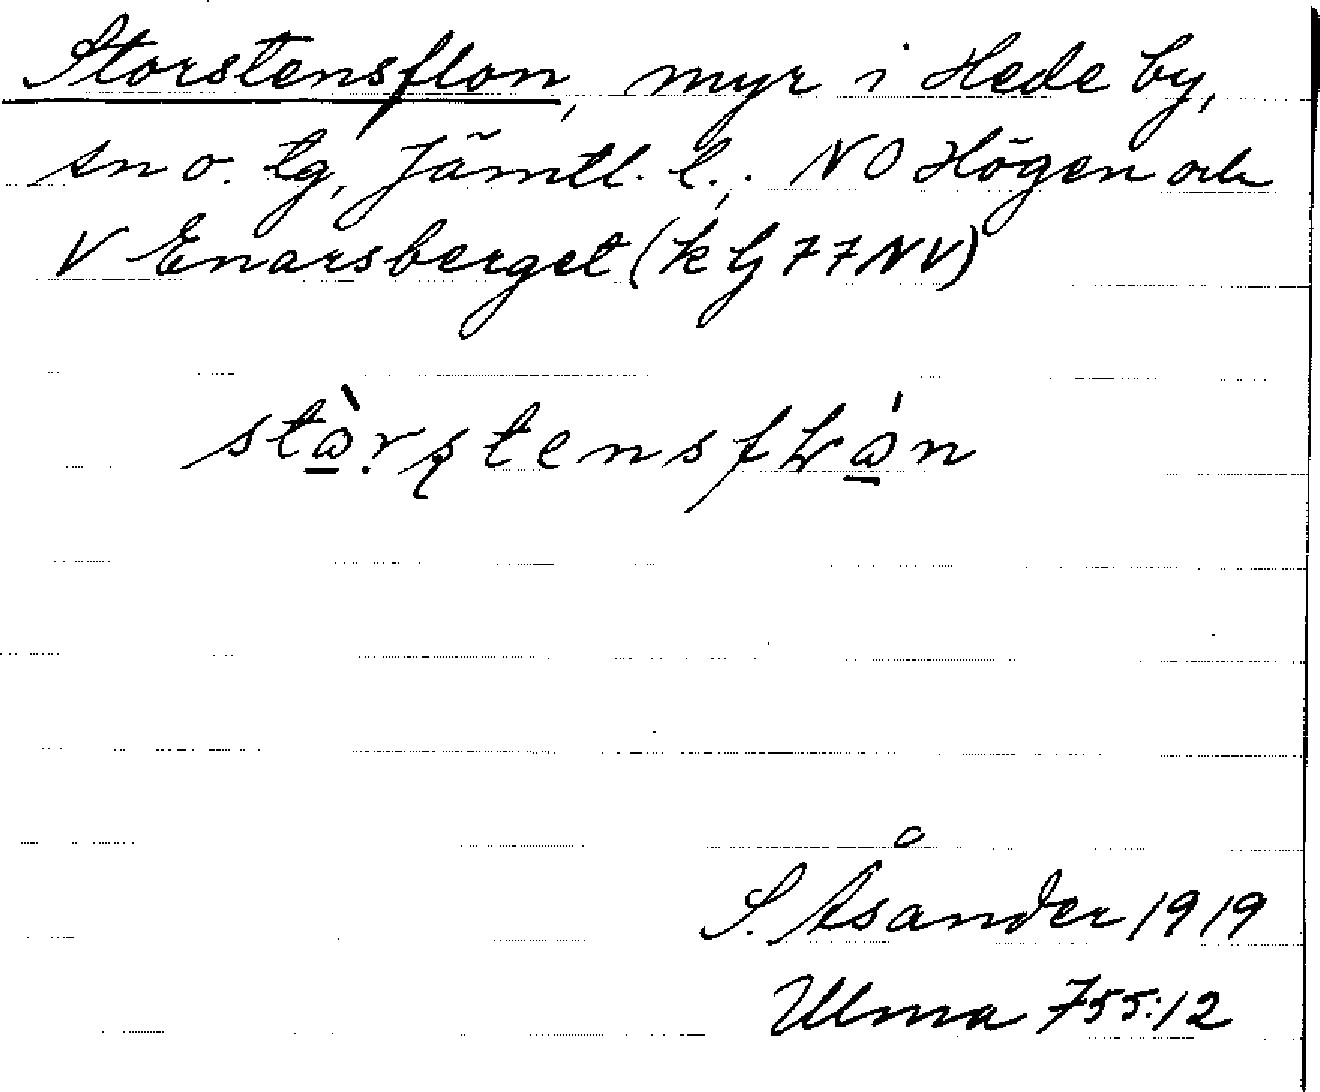 Storstensflon, myr i Hede by,
sn o. tg, Jämtl. l., NO Högen och
V Enarsberget (k bj 77 NV)
stàrstensfLán
S. Åsander 1919
Ulma 755:12